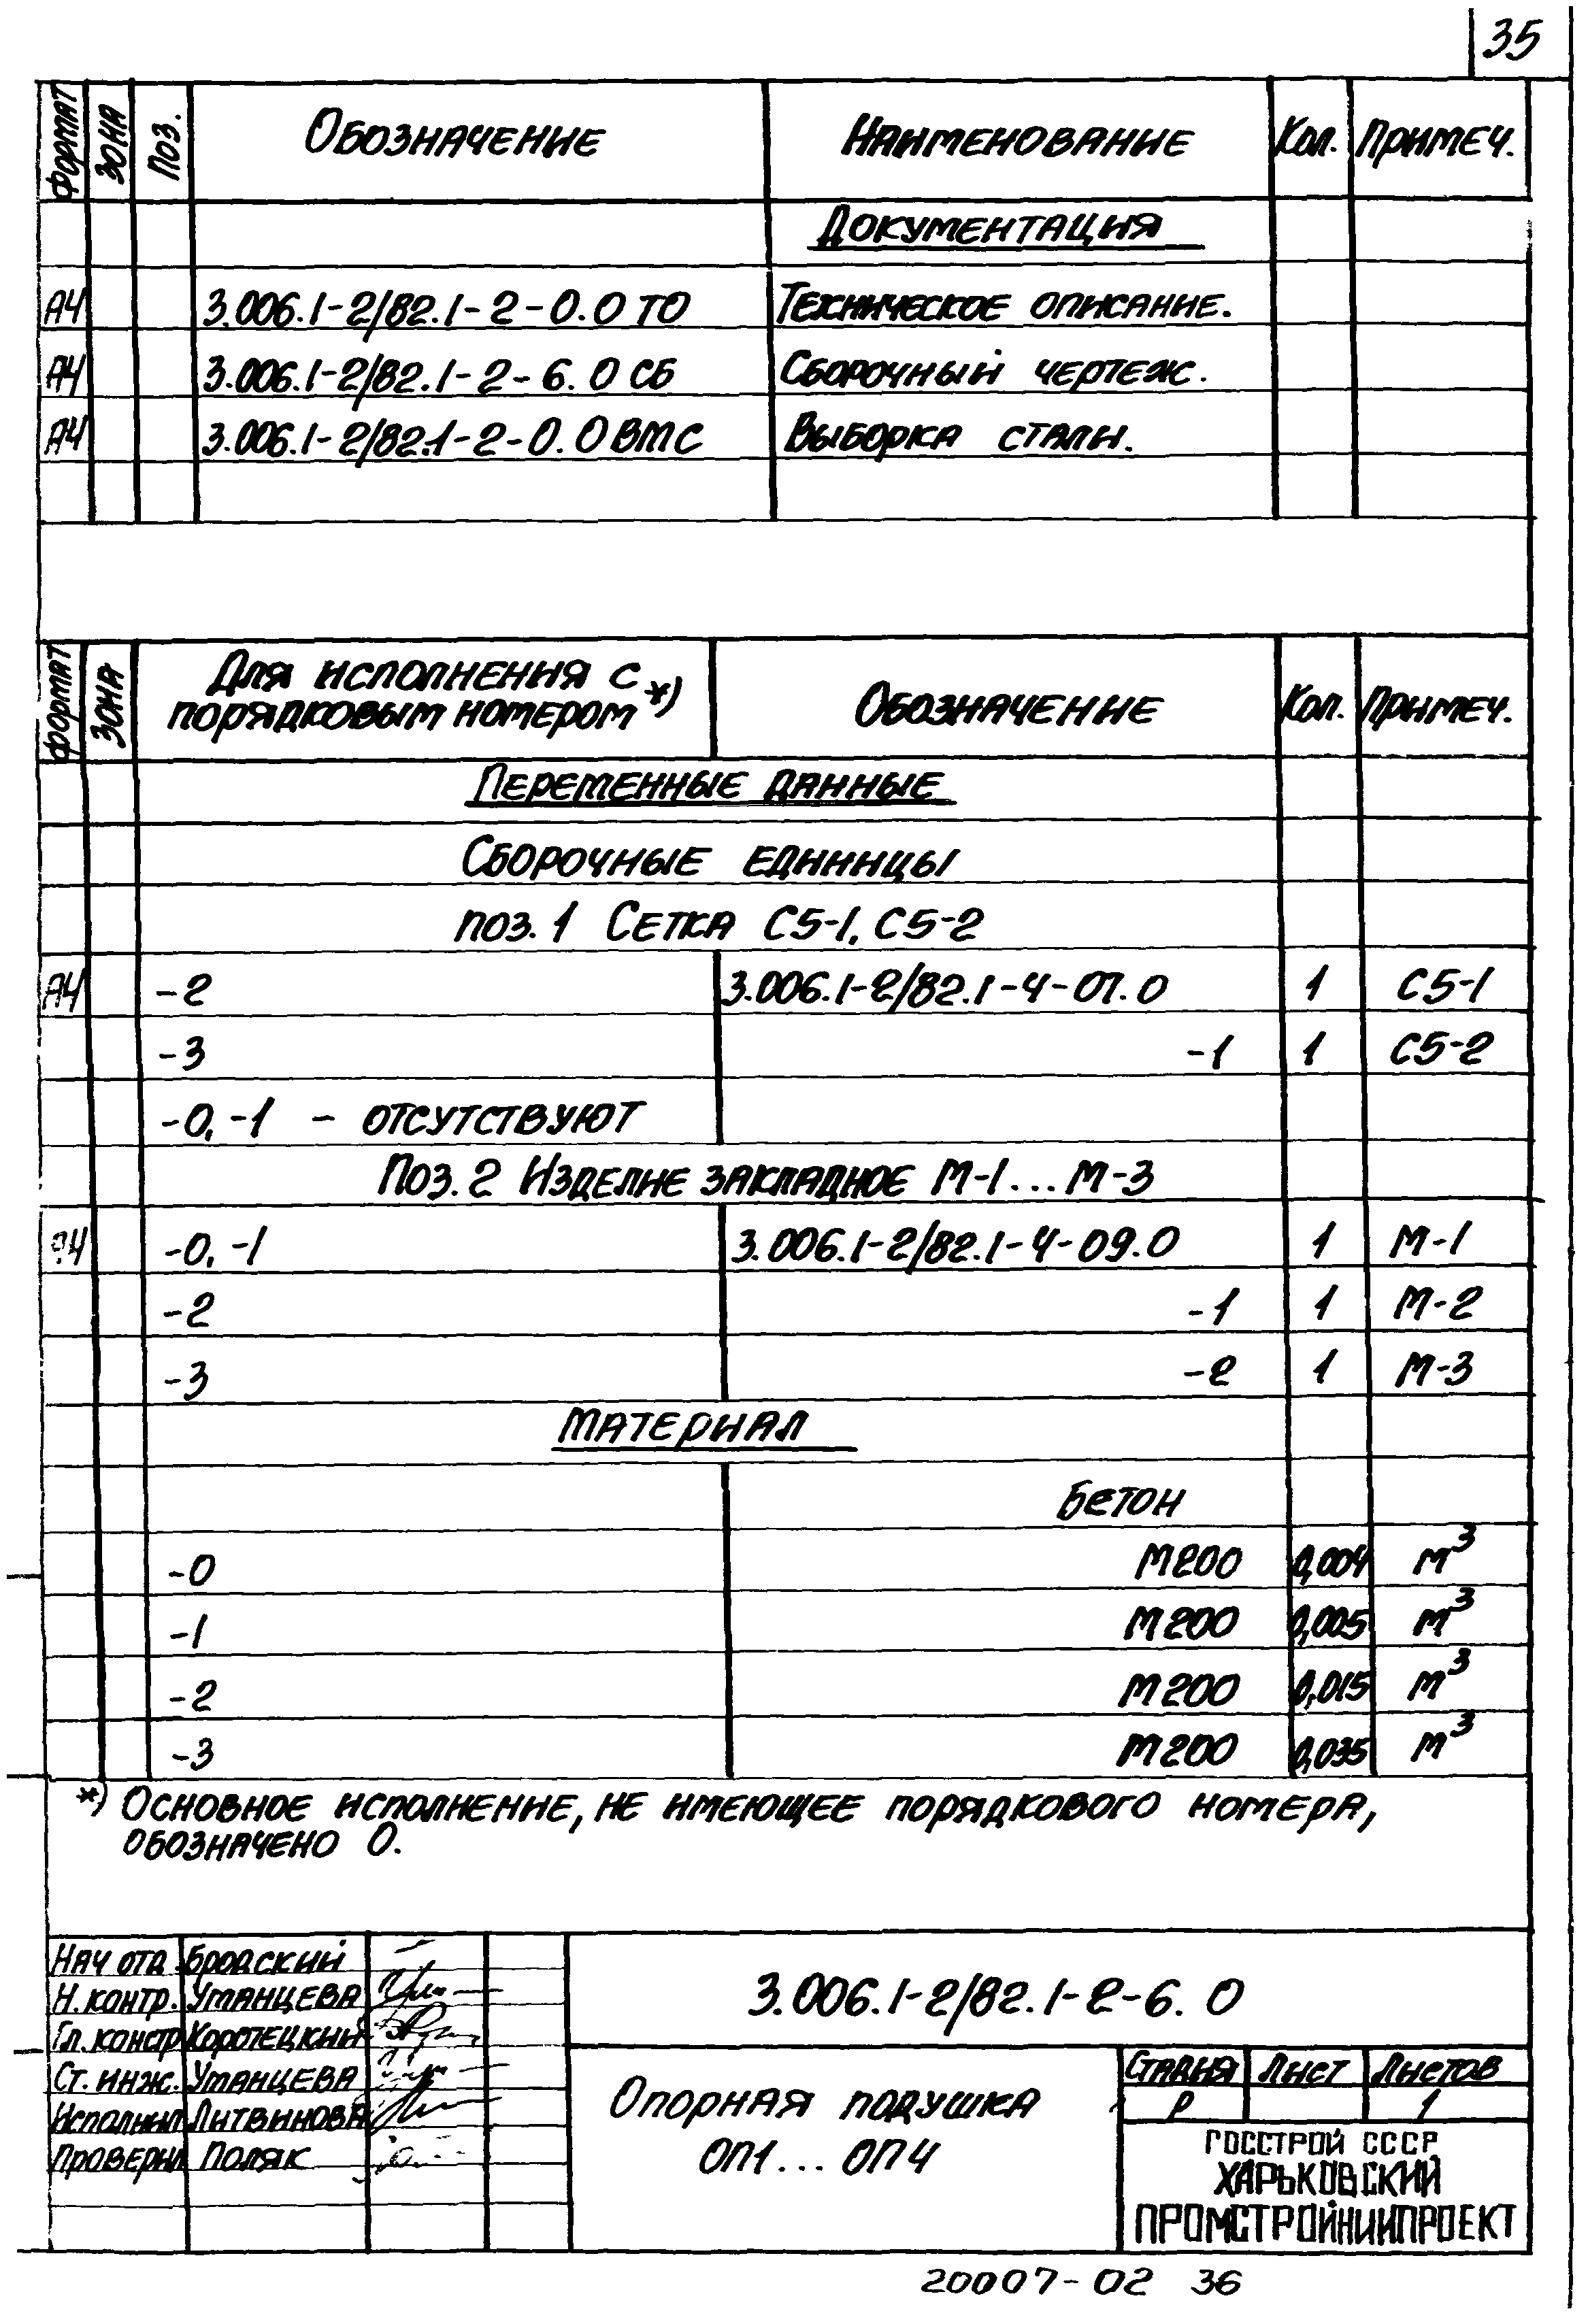 35
Формат Зона Поз. Обозначение Наименование Кол. Примеч.
Документация
А4 3.006.1-2/82.1-2-0.0 ТО Техническое описание.
А4 3.006.1-2/82.1-2-6.0 СБ Сборочный чертеж.
А4 3.006.1-2/82.1-2-0.0 ВМС Выборка стали.
Формат Зона Для исполнения с порядковым номером *) Обозначение Кол. Примеч.
Переменные данные
Сборочные единицы
поз. 1 Сетка С5-1, С5-2
А4 -2 3.006.1-2/82.1-4-07.0 1 С5-1
-3 -1 1 С5-2
-0, -1 - отсутствуют
Поз. 2 Изделие закладное М-1...М-3
А4 -0, -1 3.006.1-2/82.1-4-09.0 1 М-1
-2 -1 1 М-2
-3 -2 1 М-3
Материал
Бетон
-0 М200 0,004 м³
-1 М200 0,005 м³
-2 М200 0,015 м³
-3 М200 0,035 м³
*) Основное исполнение, не имеющее порядкового номера,
обозначено 0.
Нач отд. Бродский
Н. контр. Уманцева
Гл. констр Коротецкий
Ст. инж. Уманцева
Исполнил Литвинова
Проверил Поляк
3.006.1-2/82.1-2-6.0
Опорная подушка
ОП1...ОП4
Стадия Лист Листов
Р 1
ГОССТРОЙ СССР
ХАРЬКОВСКИЙ
ПРОМСТРОЙНИИПРОЕКТ
20007-02 36